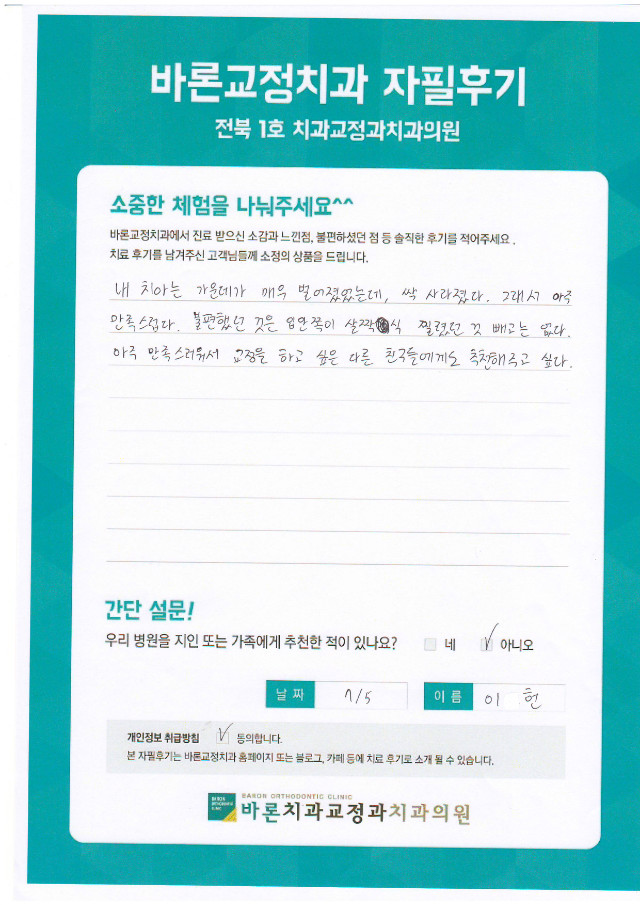 바론교정치과 자필후기
전북 1호 치과교정과치과의원
소중한 체험을 나눠주세요^^
바론교정치과에서 진료 받으신 소감과 느낀점, 불편하셨던 점 등 솔직한 후기를 적어주세요.
치료 후기를 남겨주신 고객님들께 소정의 상품을 드립니다.
내 치아는 가운데가 매우 벌어졌었는데, 싹 사라졌다. 그래서 아주
만족스럽다. 불편했던 것은 입안쪽이 살짝 식 찔렸던 것 빼고는 없다.
아주 만족스러워서 교정을 하고 싶은 다른 친구들에게도 추천해주고 싶다.
간단 설문!
우리 병원을 지인 또는 가족에게 추천한 적이 있나요? 네 아니오
날 짜 7/5 이 름 이 헌
개인정보 취급방침 동의합니다.
본 자필후기는 바론교정치과 홈페이지 또는 블로그, 카페 등에 치료 후기로 소개 될 수 있습니다.
BARON ORTHODONTIC CLINIC
바론치과교정과치과의원